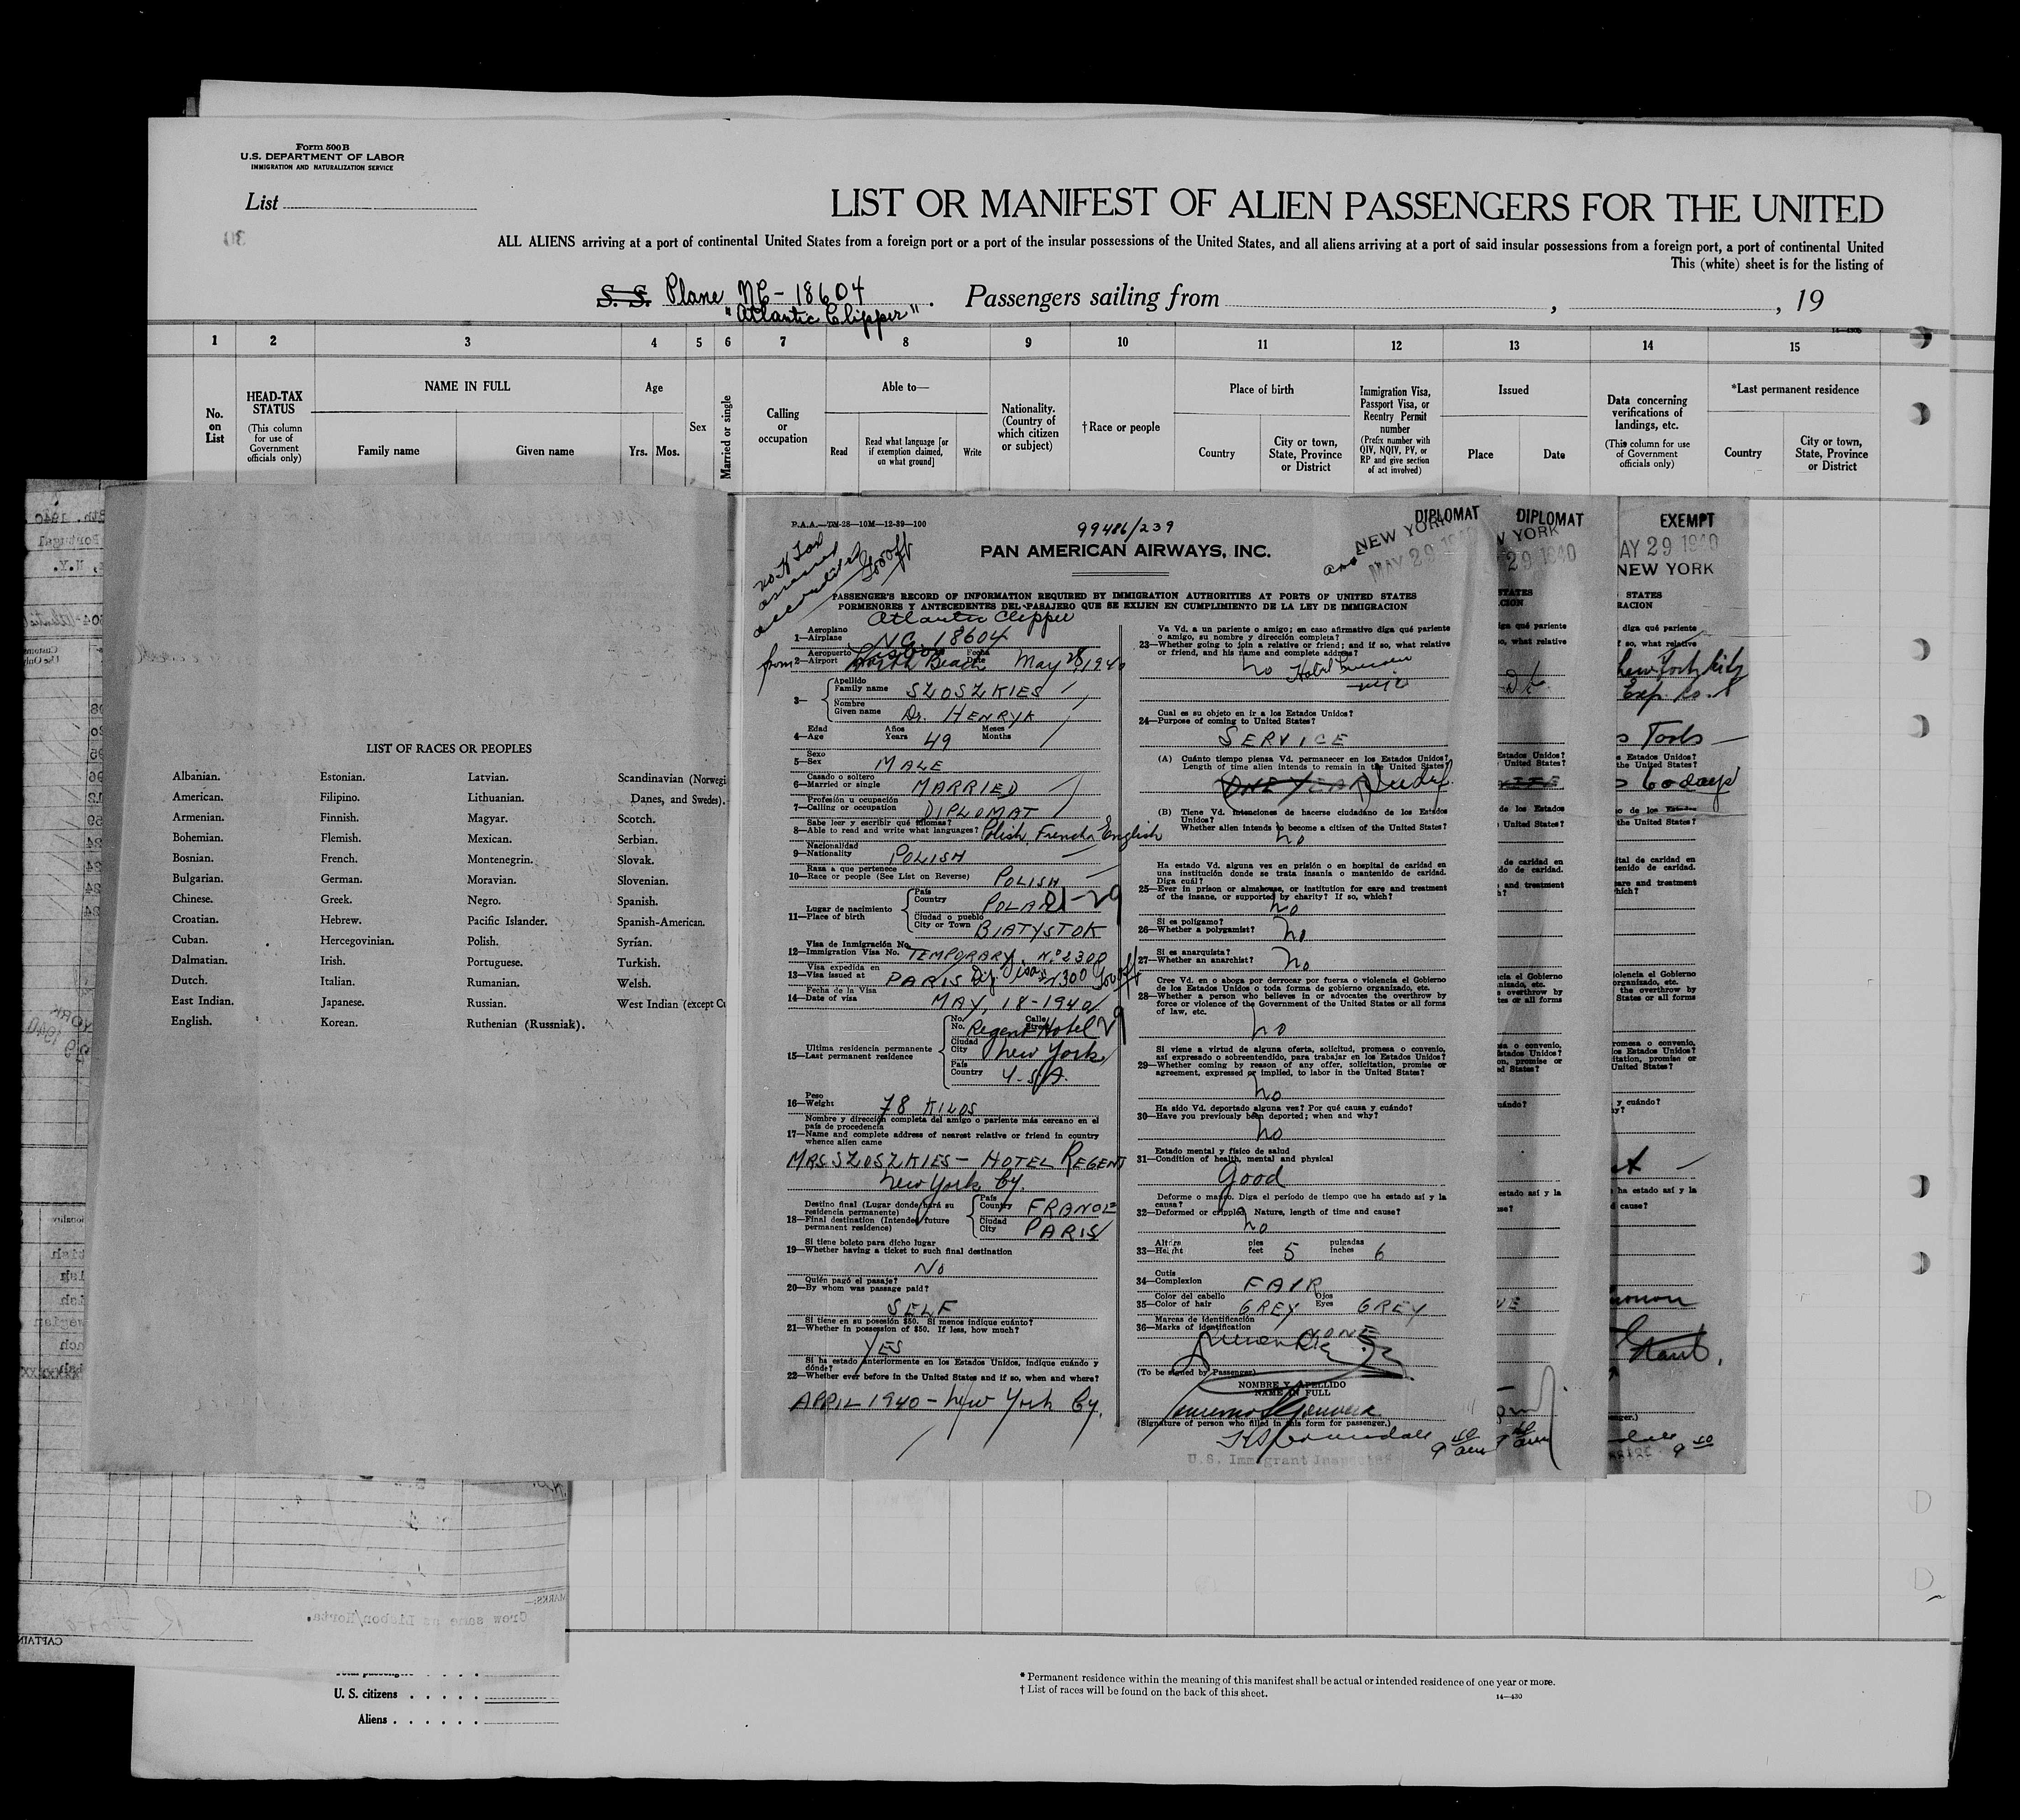 Form 500 B
U.S. DEPARTMENT OF LABOR
IMMIGRATION AND NATURALIZATION SERVICE
List
LIST OR MANIFEST OF ALIEN PASSENGERS FOR THE UNITED
ALL ALIENS arriving at a port of continental United States from a foreign port or a port of the insular possessions of the United States, and all aliens arriving at a port of said insular possessions from a foreign port, a port of continental United
This (white) sheet is for the listing of
S. S. Plane NC-18604 . Passengers sailing from , , 19
"Atlantic Clipper"
1 2 3 4 5 6 7 8 9 10 11 12 13 14 15
No. on List
HEAD-TAX STATUS
(This column for use of Government officials only)
NAME IN FULL
Family name
Given name
Age
Yrs. Mos.
Sex
Married or single
Calling or occupation
Able to—
Read
Read what language [or if exemption claimed, on what ground]
Write
Nationality. (Country of which citizen or subject)
†Race or people
Place of birth
Country
City or town, State, Province or District
Immigration Visa, Passport Visa, or Reentry Permit number
(Prefix number with QIV, NQIV, PV, or RP and give section of act involved)
Issued
Place
Date
Data concerning verifications of landings, etc.
(This column for use of Government officials only)
*Last permanent residence
Country
City or town, State, Province or District
LIST OF RACES OR PEOPLES
Albanian.
American.
Armenian.
Bohemian.
Bosnian.
Bulgarian.
Chinese.
Croatian.
Cuban.
Dalmatian.
Dutch.
East Indian.
English.
Estonian.
Filipino.
Finnish.
Flemish.
French.
German.
Greek.
Hebrew.
Hercegovinian.
Irish.
Italian.
Japanese.
Korean.
Latvian.
Lithuanian.
Magyar.
Mexican.
Montenegrin.
Moravian.
Negro.
Pacific Islander.
Polish.
Portuguese.
Rumanian.
Russian.
Ruthenian (Russniak).
Scandinavian (Norwegi
Danes, and Swedes).
Scotch.
Serbian.
Slovak.
Slovenian.
Spanish.
Spanish-American.
Syrian.
Turkish.
Welsh.
West Indian (except Cu
P.A.A.—TM-28—10M—12-39—100
99486/239
PAN AMERICAN AIRWAYS, INC.
DIPLOMAT
NEW YORK
MAY 29 1940
PASSENGER'S RECORD OF INFORMATION REQUIRED BY IMMIGRATION AUTHORITIES AT PORTS OF UNITED STATES
PORMENORES Y ANTECEDENTES DEL PASAJERO QUE SE EXIJEN EN CUMPLIMIENTO DE LA LEY DE IMMIGRACION
Atlantic Clipper
Aeroplano
1—Airplane NC 18604
Aeropuerto Fecha
from 2—Airport North Beach Date May 28, 1940
Apellido
3— Family name SZOSZKIES
Nombre
Given name Dr. HENRYK
Edad Años Meses
4—Age Years 49 Months
Sexo
5—Sex MALE
Casado o soltero
6—Married or single MARRIED
Profesión u ocupación
7—Calling or occupation DIPLOMAT
Sabe leer y escribir qué idiomas?
8—Able to read and write what languages? Polish, French, English
Nacionalidad
9—Nationality POLISH
Raza a que pertenece
10—Race or people (See List on Reverse) POLISH
Lugar de nacimiento
11—Place of birth
País
Country POLAND
Ciudad o pueblo
City or Town BIATYSTOK
Visa de Inmigración No.
12—Immigration Visa No. TEMPORARY. No 2300
Visa expedida en
13—Visa issued at PARIS
Fecha de la Visa
14—Date of visa MAY, 18-1940
Ultima residencia permanente
15—Last permanent residence
No. Calle
No. Street Regent Hotel
Ciudad
City New York
País
Country U.S.A.
Peso
16—Weight 78 KILOS
Nombre y dirección completa del amigo o pariente más cercano en el país de procedencia
17—Name and complete address of nearest relative or friend in country whence alien came
MRS SZOSZKIES - HOTEL REGENT
New York Cy.
Destino final (Lugar donde hará su residencia permanente)
18—Final destination (Intended future permanent residence)
País
Country FRANCE
Ciudad
City PARIS
Si tiene boleto para dicho lugar
19—Whether having a ticket to such final destination
No
Quién pagó el pasaje?
20—By whom was passage paid?
SELF
Si tiene en su posesión $50. Si menos indique cuánto?
21—Whether in possession of $50. If less, how much?
YES
Si ha estado anteriormente en los Estados Unidos, indique cuándo y dónde?
22—Whether ever before in the United States and if so, when and where?
APRIL 1940 - New York Cy.
Va Vd. a un pariente o amigo; en caso afirmativo diga qué pariente o amigo, su nombre y dirección completa?
23—Whether going to join a relative or friend; and if so, what relative or friend, and his name and complete address?
no Hotel
Cual es su objeto en ir a los Estados Unidos?
24—Purpose of coming to United States?
SERVICE
(A) Cuánto tiempo piensa Vd. permanecer en los Estados Unidos?
Length of time alien intends to remain in the United States?
ONE YEAR Indef.
(B) Tiene Vd. intenciones de hacerse ciudadano de los Estados Unidos?
Whether alien intends to become a citizen of the United States?
no
Ha estado Vd. alguna vez en prisión o en hospital de caridad en una institución donde se trata insania o mantenido de caridad. Diga cuál?
25—Ever in prison or almshouse, or institution for care and treatment of the insane, or supported by charity? If so, which?
no
Si es polígamo?
26—Whether a polygamist? no
Si es anarquista?
27—Whether an anarchist? no
Cree Vd. en o aboga por derrocar por fuerza o violencia el Gobierno de los Estados Unidos o toda forma de gobierno organizado, etc.
28—Whether a person who believes in or advocates the overthrow by force or violence of the Government of the United States or all forms of law, etc.
no
Si viene a virtud de alguna oferta, solicitud, promesa o convenio, así expresado o sobreentendido, para trabajar en los Estados Unidos?
29—Whether coming by reason of any offer, solicitation, promise or agreement, expressed or implied, to labor in the United States?
no
Ha sido Vd. deportado alguna vez? Por qué causa y cuándo?
30—Have you previously been deported; when and why?
no
Estado mental y físico de salud
31—Condition of health, mental and physical
Good
Deforme o manco. Diga el período de tiempo que ha estado así y la causa?
32—Deformed or crippled. Nature, length of time and cause?
no
Altura pies pulgadas
33—Height feet 5 inches 6
Cutis
34—Complexion FAIR
Color del cabello Ojos
35—Color of hair GREY Eyes GREY
Marcas de identificación
36—Marks of identification NONE
(To be signed by Passenger)
NOMBRE Y APELLIDO
NAME IN FULL
(Signature of person who filled in this form for passenger.)
U.S. Immigrant Inspector
DIPLOMAT
29 1940
EXEMPT
MAY 29 1940
NEW YORK
New York City
Exp. Co.
Tools
60 days
Total passengers
U. S. citizens
Aliens
* Permanent residence within the meaning of this manifest shall be actual or intended residence of one year or more.
† List of races will be found on the back of this sheet.
14—430
Crew same as Lisbon/Horta.